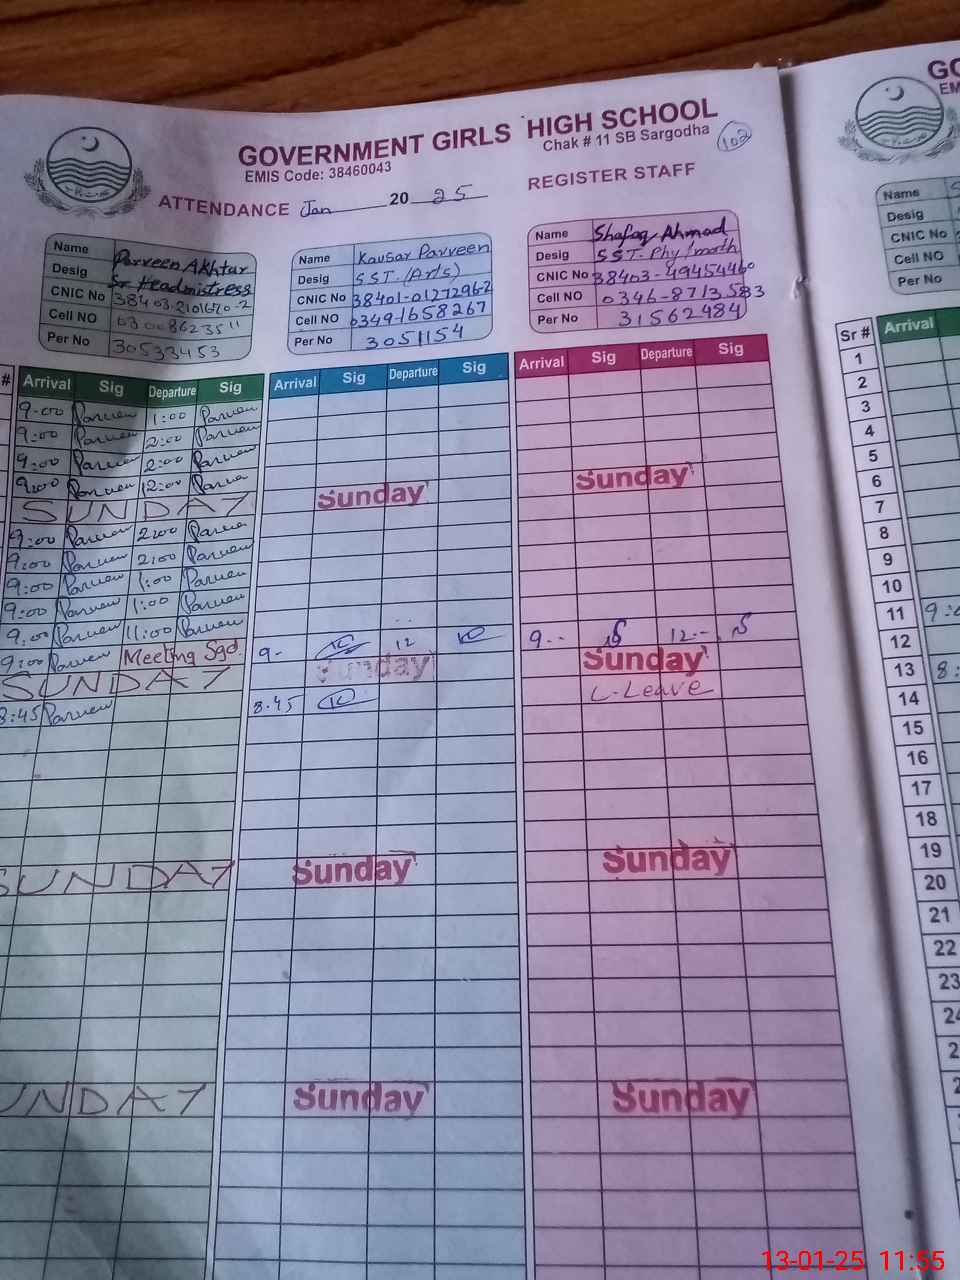 GOVERNMENT GIRLS HIGH SCHOOL
EMIS Code: 38460043
Chak # 11 SB Sargodha
102
ATTENDANCE Jan 20 25 REGISTER STAFF
Name Parveen Akhtar
Desig Sr. Headmistress
CNIC No 38403-2101670-2
Cell NO 03008623511
Per No 30533453
Name Kausar Parveen
Desig SST. (Arts)
CNIC No 38401-0127296-2
Cell NO 0349-1658267
Per No 3051154
Name Shafaq Ahmad
Desig SST. Phy/math
CNIC No 38403-4945446-0
Cell NO 0346-8713583
Per No 31562484
# Arrival Sig Departure Sig Arrival Sig Departure Sig Arrival Sig Departure Sig
9-00 Parveen 1:00 Parveen
9:00 Parveen 2:00 Parveen
9:00 Parveen 2:00 Parveen
9:00 Parveen 12:00 Parveen
SUNDAY Sunday Sunday
9:00 Parveen 2:00 Parveen
9:00 Parveen 2:00 Parveen
9:00 Parveen 1:00 Parveen
9:00 Parveen 1:00 Parveen
9:00 Parveen 11:00 Parveen
9:00 Parveen Meeting Sgd. 9- 12 9-- 12--
SUNDAY Sunday Sunday
8:45 Parveen 8.45 L-Leave
SUNDAY Sunday Sunday
UNDAY Sunday Sunday
GO
EM
Name S
Desig
CNIC No
Cell NO
Per No
Sr # Arrival
1
2
3
4
5
6
7
8
9
10
11 9:
12
13 8:
14
15
16
17
18
19
20
21
22
23
24
2
2
13-01-25 11:55